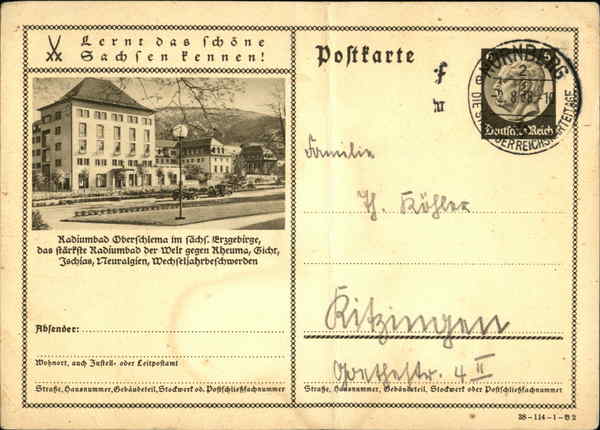 Lernt das schöne
Sachsen kennen!
Radiumbad Oberschlema im sächs. Erzgebirge,
das stärkste Radiumbad der Welt gegen Rheuma, Gicht,
Ischias, Neuralgien, Wechseljahrbeschwerden
Absender:
Wohnort, auch Zustell- oder Leitpostamt
Straße, Hausnummer, Gebäudeteil, Stockwerk od. Postschließfachnummer
Postkarte
NÜRNBERG 2
DIE STADT DER REICHSPARTEITAGE
Deutsches Reich
Familie
Th. Köhler
Kitzingen
Goethestr. 4 II
Straße, Hausnummer, Gebäudeteil, Stockwerk oder Postschließfachnummer
38-114-1-B2